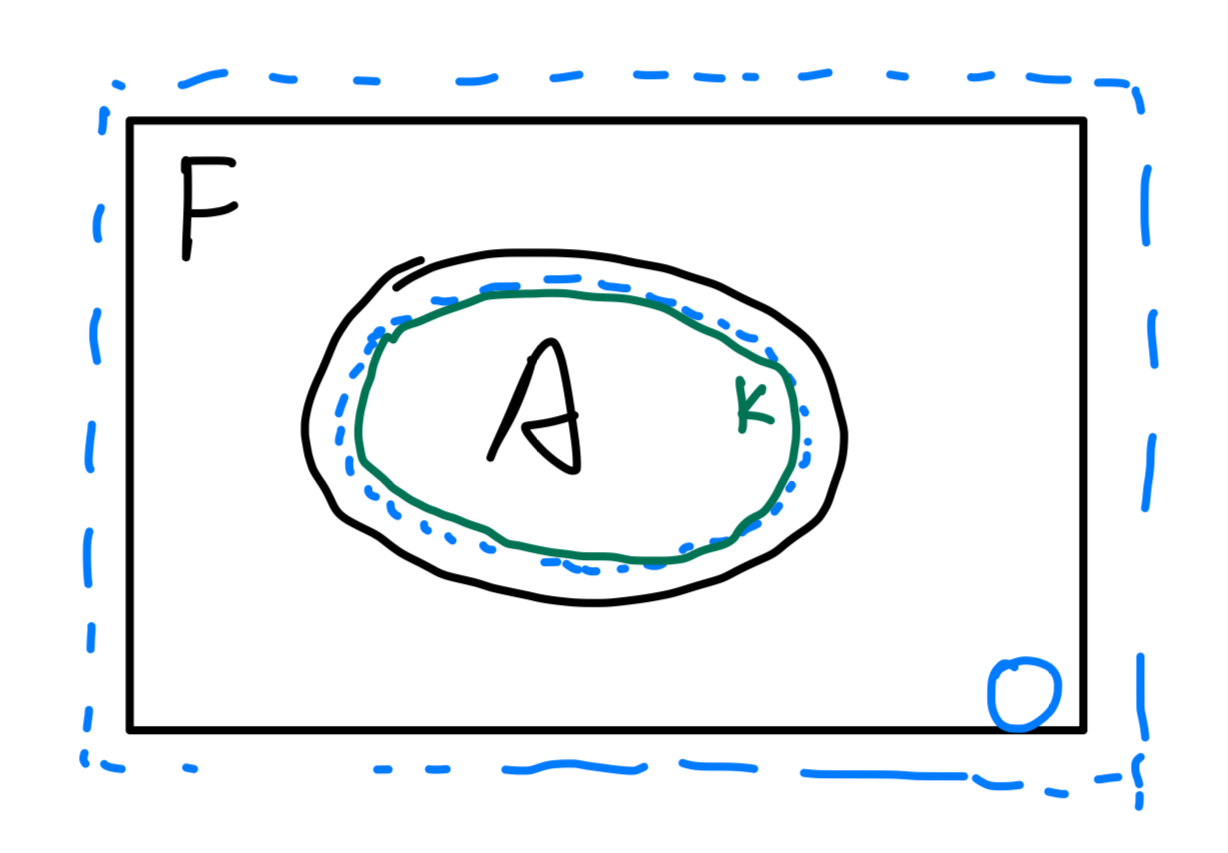 F
A
K
O